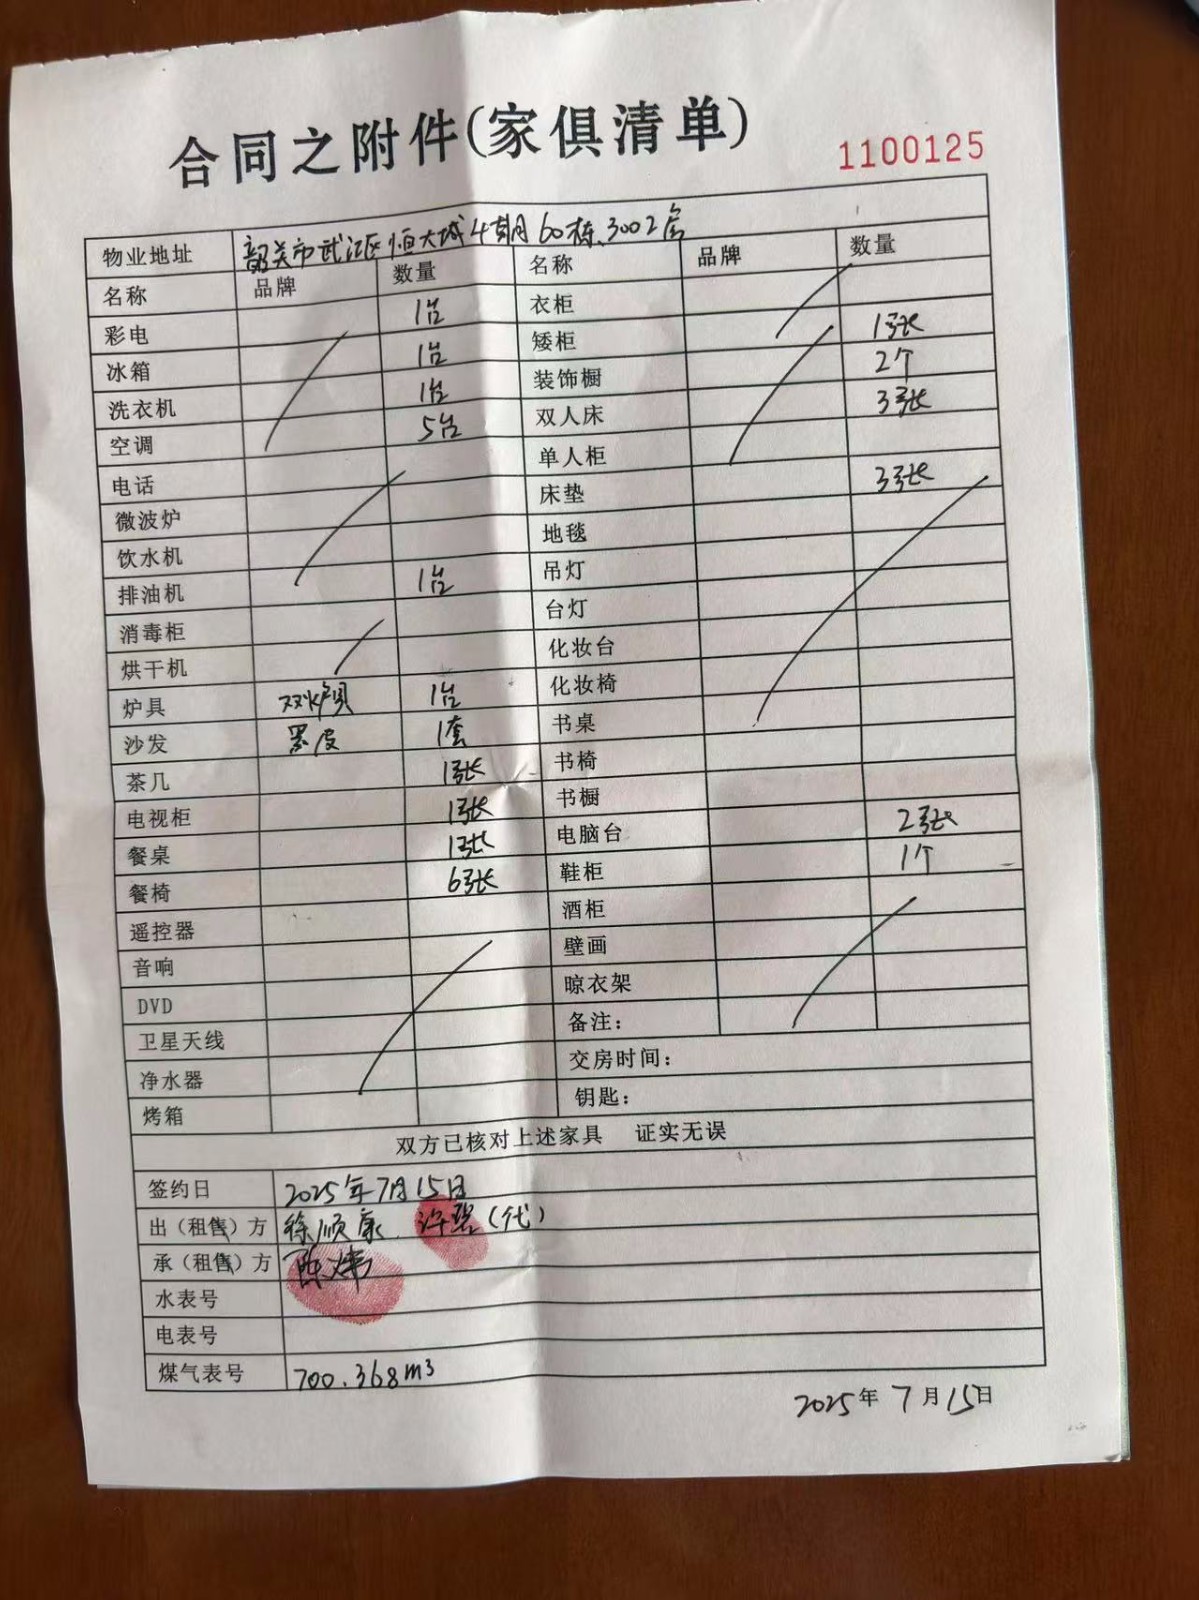 合同之附件(家俱清单)
1100125
物业地址 韶关市武江区恒大城4期60栋、3002房
名称 品牌 数量 名称 品牌 数量
彩电 1台 衣柜
冰箱 1台 矮柜 1张
洗衣机 1台 装饰橱 2个
空调 5台 双人床 3张
电话 单人柜
微波炉 床垫 3张
饮水机 地毯
排油机 1台 吊灯
消毒柜 台灯
烘干机 化妆台
炉具 双炉具 1台 化妆椅
沙发 黑皮 1套 书桌
茶几 1张 书椅
电视柜 1张 书橱
餐桌 1张 电脑台 2张
餐椅 6张 鞋柜 1个
遥控器 酒柜
音响 壁画
DVD 晾衣架
卫星天线 备注：
净水器 交房时间：
烤箱 钥匙：
双方已核对上述家具 证实无误
签约日 2025年7月15日
出（租售）方 徐顺康、许碧（代）
承（租售）方 陈炜
水表号
电表号
煤气表号 700.368m³
2025年7月15日